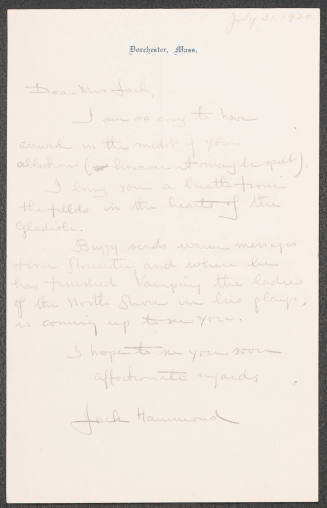 July 21. 1920
Dorchester, Mass.
Dear Mrs Jack,
I am so sorry to have
arrived in the midst of your
ablutions ( however it may be spelt).
I bring you a breath from
the fields in the hearts of the
Gladiole.
Buzzy sends warm messages
from Gloucester and when he
has finished Vamping the ladies
of the North Shore in his plays,
is coming up to see you.
I hope to see you soon
affectionate regards,
Jack Hammond